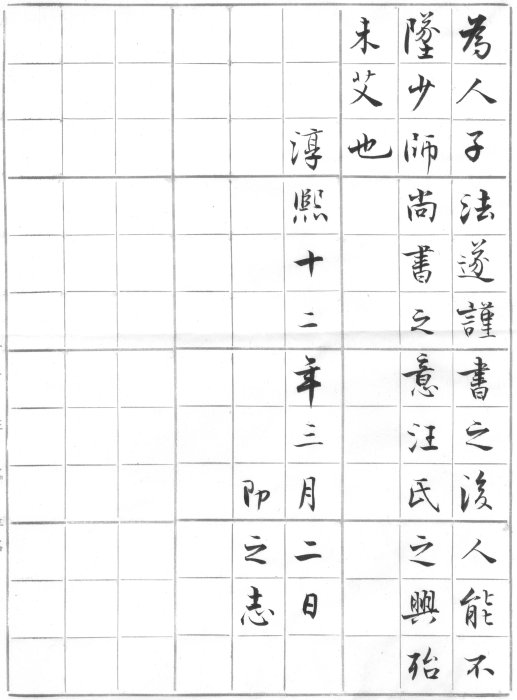 為人子法遂謹書之後人能不
墜少師尚書之意汪氏之興殆
未艾也
淳熙十二年三月二日
即之志